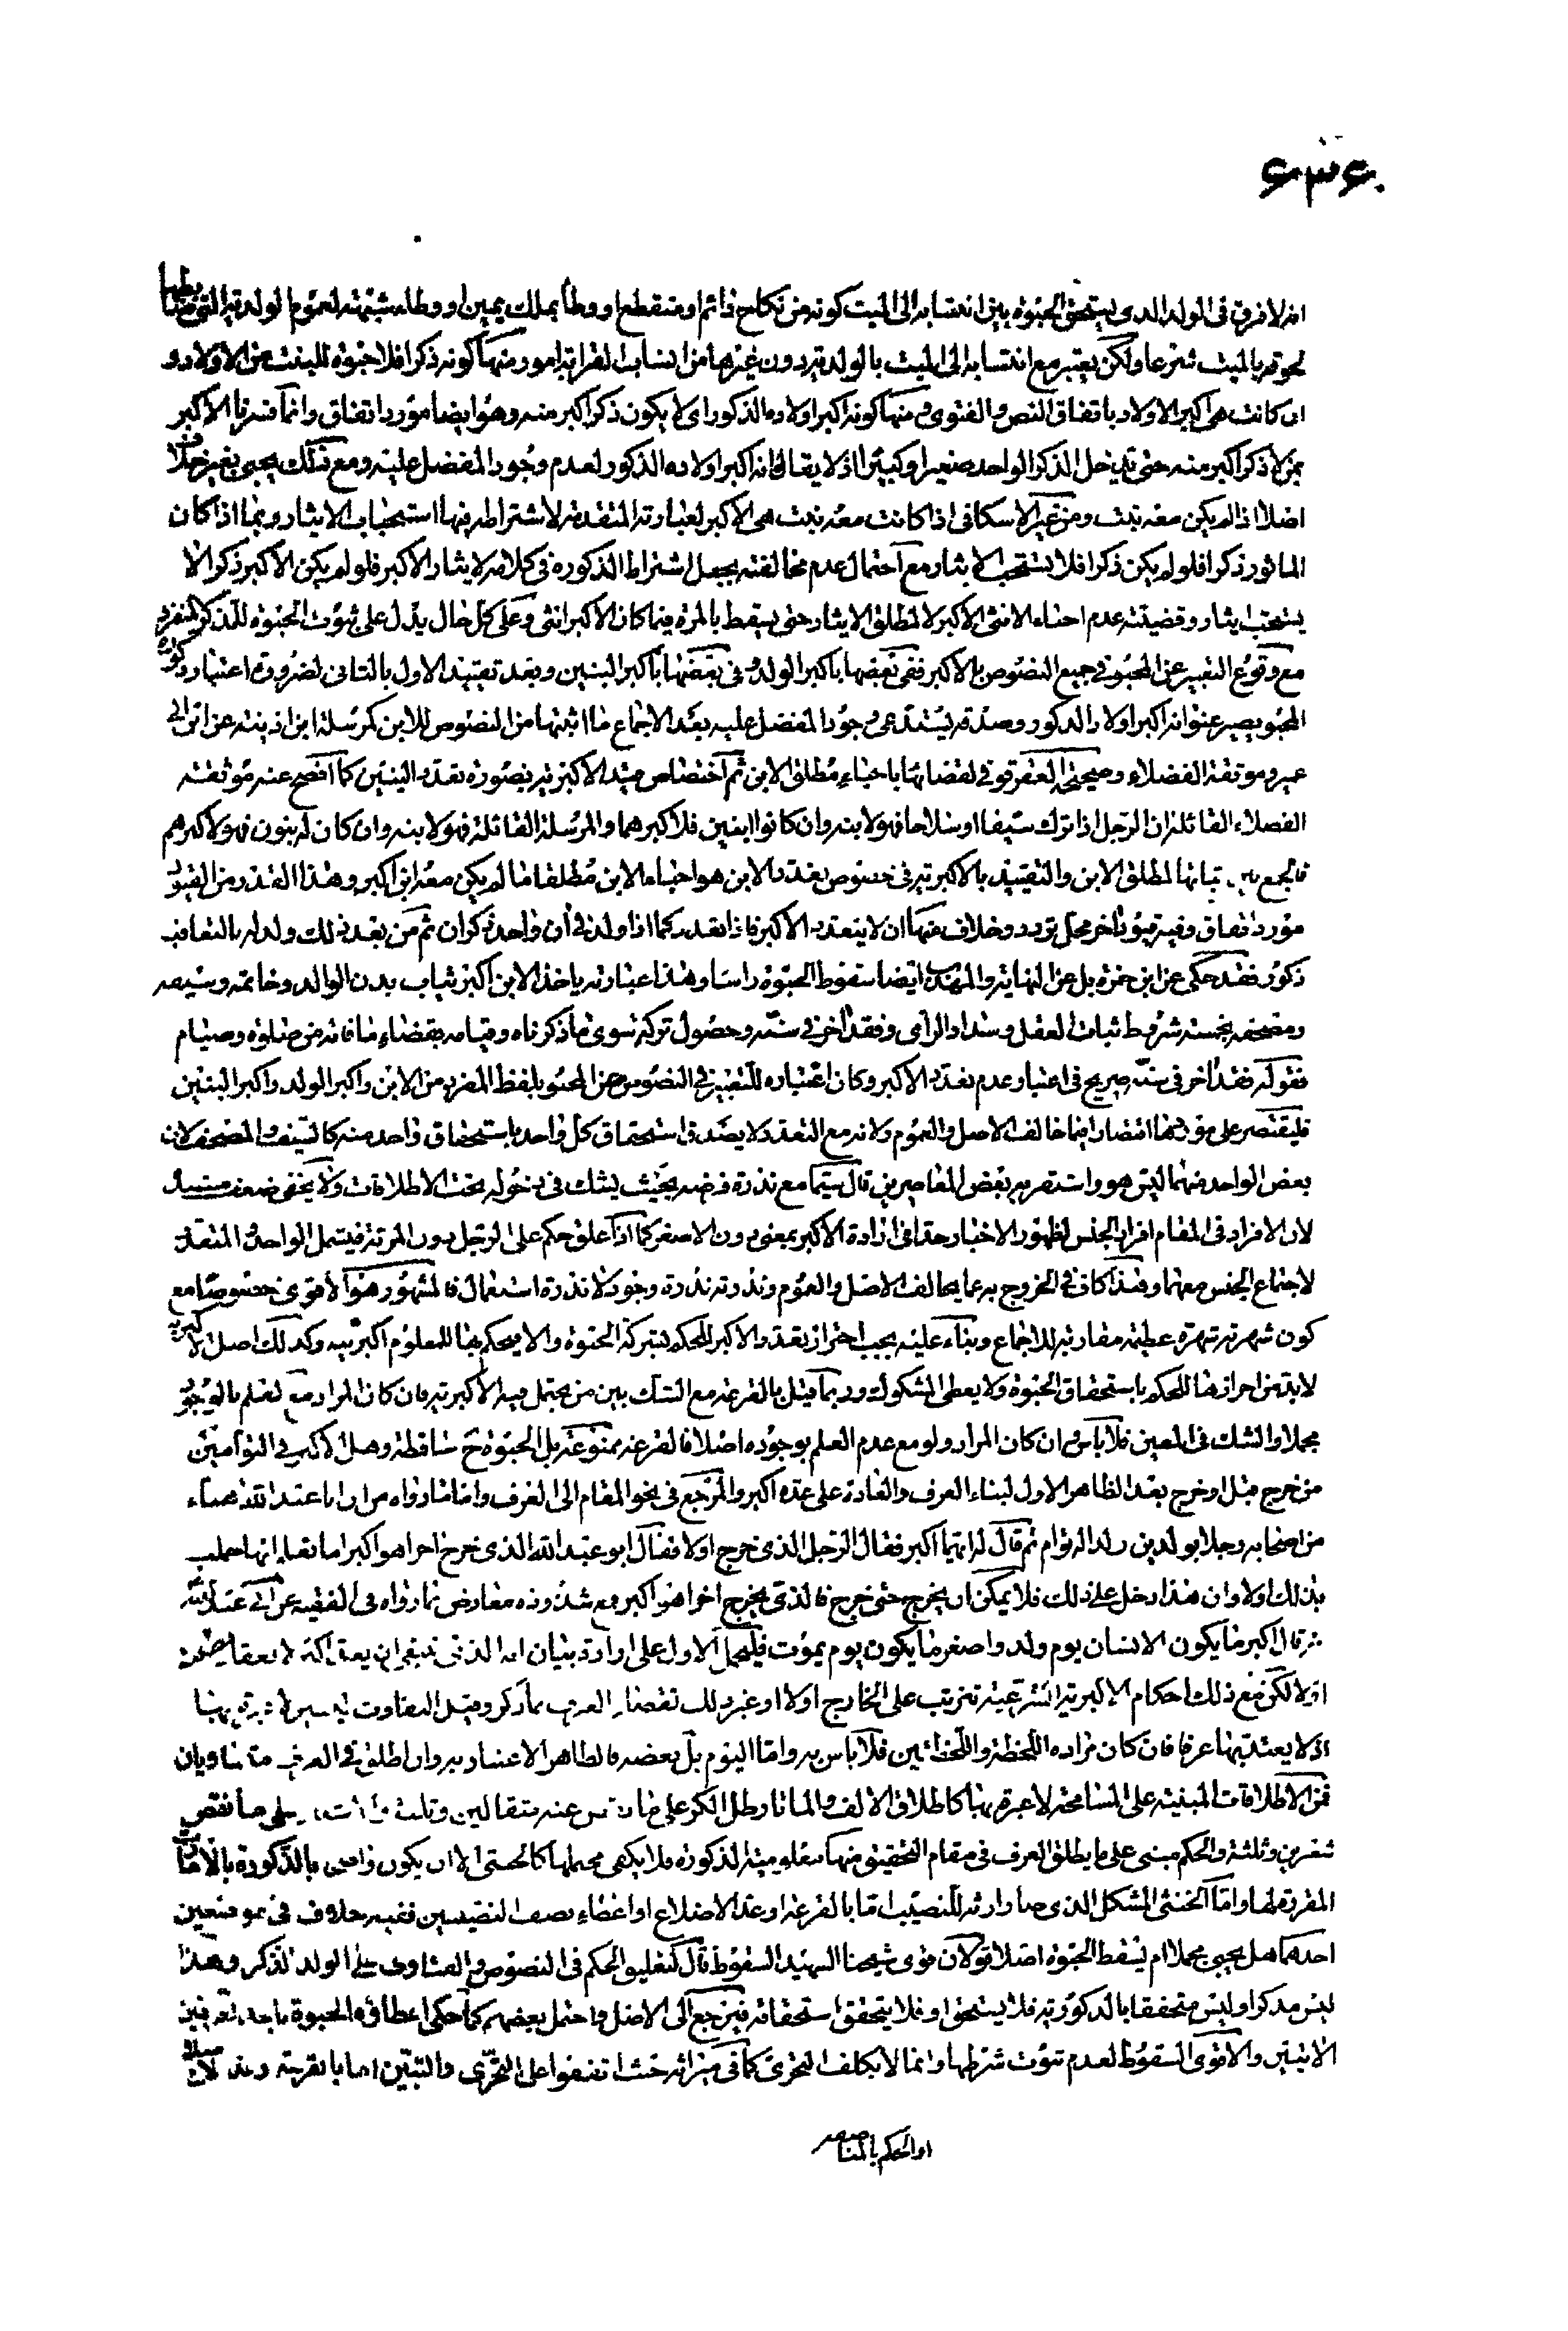 ۶۳۶
انه لا فرق فى الولد الذى يستحق الحبوة بين انتسابه الى الميت كونه من نكاح دائم او منقطع او وطأ بملك يمين او وطاء شبهة لعموم الولدية التى مناطها
لحوقه بالميت شرعا ولكن يعتبر مع انتسابه الى الميت بالولدية دون غيرها من انساب القرابة امور منها كونه ذكرا فلا حبوة للبنت من الاولاد و
ان كانت هى اكبر الاولاد باتفاق النص والفتوى و منها كونه اكبر اولاده الذكور اى لا يكون ذكر اكبر منه وهو ايضا مورد اتفاق وانما فسرنا الاكبر
بمن لا ذكر اكبر منه حتى يدخل الذكر الواحد صغيرا و كبيرا اذ لا يقال انه اكبر اولاده الذكور لعدم وجود المفضل عليه ومع ذلك يحبى بغير خلاف
اصلا اذا لم يكن معه بنت ومن غير الاسكافى اذا كانت معه بنت هى الاكبر لعبارته المتقدمة لاشتراطه فيها استحباب الايثار وبما اذا كان
الماثور ذكرا فلو لم يكن ذكرا فلا يستحب الايثار مع احتمال عدم مخالفته بجعل اشتراط الذكورة فى كلامه لايثار الاكبر فلو لم يكن الاكبر ذكرا لا
يستحب ايثار وقضيته عدم احباء الانثى الاكبر لا لمطلق الايثار حتى يسقط بالمرة فيما كان الاكبر انثى و على كل حال يدل على ثبوت الحبوة للذكر المنفرد
مع وقوع التعبير عن المحبو فى جميع النصوص بالاكبر ففى بعضها باكبر الولد و فى بعضها باكبر البنين وبعد تقييد الاول بالثانى لضرورة اعتبار ذكورة
المحبو يصير عنوانه اكبر اولاد الذكور وصدقه يستدعى وجود المفضل عليه بعد الاجماع ما اثبتها من النصوص للابن كمرسلة ابن اذينه عن ابن ابى
عمير وموثقة الفضلاء وصحيحة العقرقوفى لقضائها باحباء مطلق الابن ثم اختصاص قيد الاكبرية بصورة تعدد البنين كما افصح عنه موثقة
الفضلاء القائلة ان الرجل اذا ترك سيفا او سلاحا فهو لابنه وان كانوا ابنين فلاكبرهما والمرسلة القائلة فهو لابنه وان كان له بنون فهو لاكبرهم
فالجمع بين اثباتها لمطلق الابن والتقييد بالاكبرية فى خصوص تعدد الابن هو احباء الابن مطلقا ما لم يكن معه ابن اكبر وهذا القدر من القيود
مورد اتفاق وفيه قيود اخر محل تردد وخلاف منها ان لا يتعدد الاكبر فاذا تعدد كما اذا ولد فى ان واحد ذكران ثم من بعد ذلك ولد له بالتعاقب
ذكور فقد حكى عن ابن حمزه بل عن النهاية والمهذب ايضا سقوط الحبوة راسا وهذا عبارته ياخذ الابن اكبر ثياب بدن الوالد وخاتمه وسيفه
ومصحفه بخمسة شروط ثبات العقل و سداد الراى و فقد اخر فى سنه وحصول تركة سوى ما ذكرناه وقيامه بقضاء ما فاته من صلوة وصيام
فقوله فقد اخر فى سنه صريح فى اعتبار عدم تعدد الاكبر وكان اعتباره للتعبير فى النصوص عن المحبو بلفظ المفرد من الابن واكبر الولد واكبر البنين
فليقتصر على موردها اقتصارا فيما خالف الاصل والعموم ولانه مع التعدد لا يصدق استحقاق كل واحد باستحقاق واحد منه كالسيف والمصحف لان
بعض الواحد منهما ليس هو واستقربه بعض المعاصرين قال سيما مع ندرة فرضه بحيث يشك فى دخوله تحت الاطلاقات ولا يخفى ضعف مستنده
لان الافراد فى المقام افراد الجنس لظهور الاخبار جدا فى ارادة الاكبر بمعنى دون الاصغر كما اذا علق حكم على الرجل دون المرئة فيشمل الواحد والمتعدد
لاجتماع الجنس معهما وهذا كاف فى الخروج به عما يخالف الاصل والعموم وندرته ندرة وجود لا ندرة استعمال فالمشهور هو الاقوى خصوصا مع
كون شهرته شهرة عظيمة مقاربة للاجماع وبناء عليه يجب احراز تعدد الاكبر للحكم بشركة الحبوة والا يحكم بها للمعلوم اكبريته وكذلك اصل الاكبرية
لابد من احرازها للحكم باستحقاق الحبوة ولا يعطى المشكوك وربما قيل بالقرعة مع الشك بين من يحتمل فيه الاكبرية فان كان المراد مع العلم بالوجود
مجملا والشك فى المعين فلا باس وان كان المراد ولو مع عدم العلم بوجوده اصلا فالقرعة ممنوعة بل الحبوة ح ساقطة وهل الاكبر فى التوامين
من خرج قبل او خرج بعد الظاهر الاول لبناء العرف والعادة على عده اكبر والمرجع فى نحو المقام الى العرف واما ما رواه من ان ابا عبد الله هناء
من اصحابه رجلا بولدين ولدا له توام ثم قال له ايهما اكبر فقال الرجل الذى خرج اولا فقال ابو عبد الله الذى خرج اخرا هو اكبر اما تعلم انها حملت
بذلك اولا وان هذا دخل على ذلك فلا يمكن ان يخرج حتى خرج فالذى يخرج اخرا هو اكبر مع شذوذه معارض بما رواه فى الفقيه عن ابى عبد الله
انه قال اكبر ما يكون الانسان يوم ولد واصغر ما يكون يوم يموت فليحمل الاول على ارادة بيان انه الذى ينبغى ان يعد اكبر
اولا لكن مع ذلك احكام الاكبرية الشرعية تترتب على الخارج اولا او غير ذلك لقضاء العرف بما ذكر وقيل التفاوت اليسير لا عبرة بهنا
اذ لا يعتد بها عرفا فان كان مراده اللحظة واللحظتين فلا باس به واما اليوم بل بعضه فالظاهر الاعتبار به وان اطلق فى العرف متساويان
فمن الاطلاقات المبنية على المسامحة لا عبرة بها كاطلاق الالف والماتا رطل الكر على ما نقص عنه مثقالين وثلث على ما نقص
شعرين وثلثة والحكم مبنى على ما يطلق العرف فى مقام التحقيق منها معلومية الذكورة فلا يكفى محتملها كالخنثى الا ان يكون واضحا بالذكورة بالامارات
المقررة لها واما الخنثى المشكل الذى صار ارثه للنصيب اما بالقرعة او عد الاضلاع او اعطاء نصف النصيبين ففيه خلاف فى موضعين
احدهما هل يحبى مجملا ام يسقط الحبوة اصلا قولان قوى شيخنا الشهيد السقوط قال لتعليق الحكم فى النصوص والفتاوى على الولد الذكر وهذا
ليس بذكر او ليس متحققا بالذكورية فلا يستحق او فلا يتحقق استحقاقه فيرجع الى الاصل واحتمل بعضهم كما حكى اعطاؤه الحبوة
الاثنين والاقوى السقوط لعدم ثبوت شرطها وانما لا يكلف التحرى كما فى ميراثه حيث اتفقوا على التحرى والتبين اما بالقرعة وعد الاضلاع
او الحكم بالمناصفه